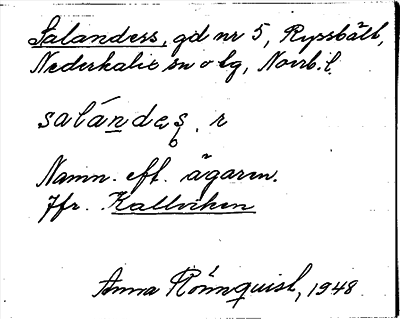 Salanders, gd nr 5, Ryssbält,
Nederkalix sn o lg, Norrb. l.
salándes. r
Namn. eft. ägaren.
Jfr. Kallviken
Anna Rönnquist, 1948